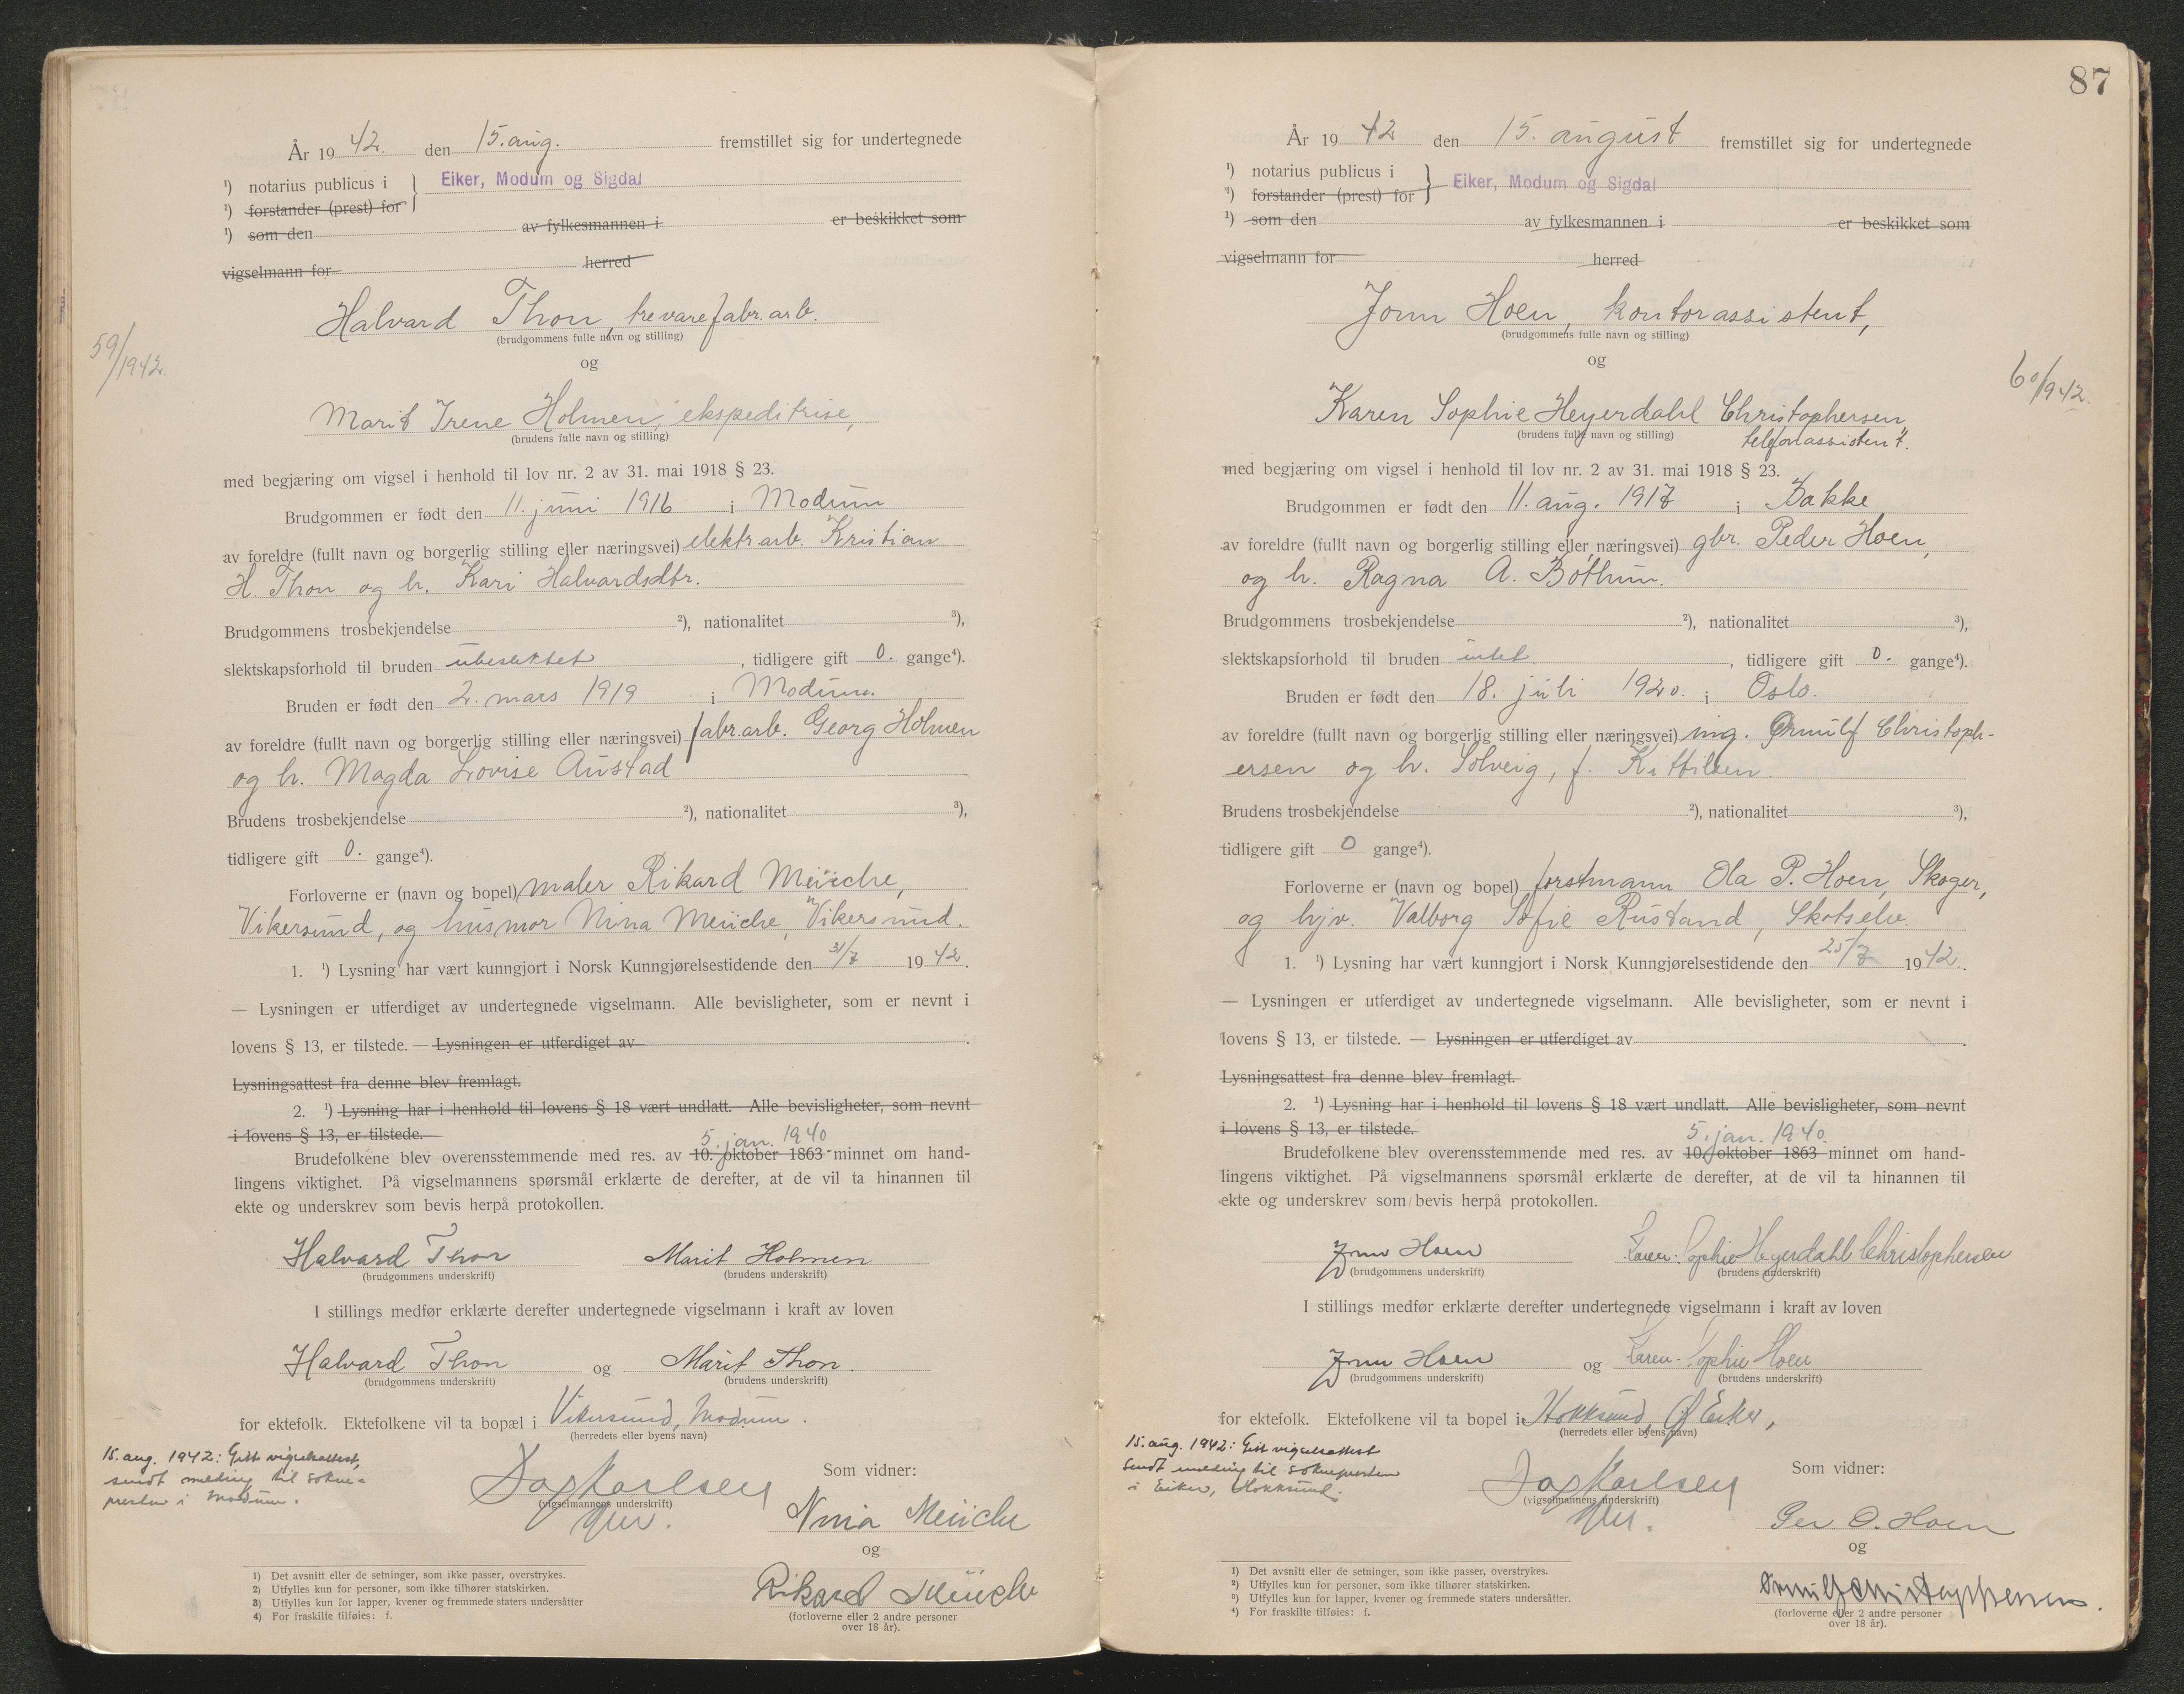 År 19 42. den 15. aug. fremstillet sig for undertegnede
¹) notarius publicus i } Eiker, Modum og Sigdal
¹) forstander (prest) for
¹) som den av fylkesmannen i er beskikket som
vigselmann for herred
Halvard Thon, trevarefabr.arb.
(brudgommens fulle navn og stilling)
og
59/1942.
Marit Irene Holmen, ekspeditrise,
(brudens fulle navn og stilling)
med begjæring om vigsel i henhold til lov nr. 2 av 31. mai 1918 § 23.
Brudgommen er født den 11. juni 1916 i Modum
av foreldre (fullt navn og borgerlig stilling eller næringsvei) elektr.arb. Kristian
H. Thon og h. Kari Halvardsdtr.
Brudgommens trosbekjendelse ²), nationalitet ³),
slektskapsforhold til bruden ubeslektet, tidligere gift 0. gange⁴).
Bruden er født den 2. mars 1919 i Modum.
av foreldre (fullt navn og borgerlig stilling eller næringsvei) fabr.arb. Georg Holmen
og h. Magda Lovise Austad
Brudens trosbekjendelse ²), nationalitet ³),
tidligere gift 0. gange⁴).
Forloverne er (navn og bopel) maler Rikard Meüche,
Vikersund, og husmor Nina Meüche, Vikersund.
1. ¹) Lysning har vært kunngjort i Norsk Kunngjørelsestidende den 31/7 19 42.
— Lysningen er utferdiget av undertegnede vigselmann. Alle bevisligheter, som er nevnt i
lovens § 13, er tilstede. — Lysningen er utferdiget av .
Lysningsattest fra denne blev fremlagt.
2. ¹) Lysning har i henhold til lovens § 18 vært undlatt. Alle bevisligheter, som nevnt
i lovens § 13, er tilstede.
5. jan. 1940
Brudefolkene blev overensstemmende med res. av 10. oktober 1863 minnet om hand-
lingens viktighet. På vigselmannens spørsmål erklærte de derefter, at de vil ta hinannen til
ekte og underskrev som bevis herpå protokollen.
Halvard Thon Marit Holmen
(brudgommens underskrift) (brudens underskrift)
I stillings medfør erklærte derefter undertegnede vigselmann i kraft av loven
Halvard Thon og Marit Thon.
(brudgommens underskrift) (brudens underskrift)
for ektefolk. Ektefolkene vil ta bopæl i Vikersund, Modum.
(herredets eller byens navn)
15. aug. 1942: Gitt vigselattest,
sendt melding til sokne-
presten i Modum.
Dag Karlsen
(vigselmannens underskrift)
Som vidner:
Nina Meüche
og
Rikard Meüche
(forloverne eller 2 andre personer
over 18 år).
1) Det avsnitt eller de setninger, som ikke passer, overstrykes.
2) Utfylles kun for personer, som ikke tilhører statskirken.
3) Utfylles kun for lapper, kvener og fremmede staters undersåtter
4) For fraskilte tilføies: f.
87
År 19 42 den 15. august fremstillet sig for undertegnede
¹) notarius publicus i } Eiker, Modum og Sigdal
¹) forstander (prest) for
¹) som den av fylkesmannen i er beskikket som
vigselmann for herred
Jonn Hoen, kontorassistent,
(brudgommens fulle navn og stilling)
og
60/1942.
Karen Sophie Heyerdahl Christophersen,
(brudens fulle navn og stilling)
telefonassistent.
med begjæring om vigsel i henhold til lov nr. 2 av 31. mai 1918 § 23.
Brudgommen er født den 11. aug. 1917 i Bakke
av foreldre (fullt navn og borgerlig stilling eller næringsvei) gbr. Peder Hoen,
og h. Ragna A. Bothum.
Brudgommens trosbekjendelse ²), nationalitet ³),
slektskapsforhold til bruden intet, tidligere gift 0. gange⁴).
Bruden er født den 18. juli 1920. i Oslo.
av foreldre (fullt navn og borgerlig stilling eller næringsvei) ing. Ørnulf Christoph-
ersen og h. Solveig, f. Kittilsen.
Brudens trosbekjendelse ²), nationalitet ³),
tidligere gift 0 gange⁴).
Forloverne er (navn og bopel) forstmann Ola P. Hoen, Skoger,
og hjv. Valborg Sofie Rustand, Skotselv.
1. ¹) Lysning har vært kunngjort i Norsk Kunngjørelsestidende den 25/7 19 42.
— Lysningen er utferdiget av undertegnede vigselmann. Alle bevisligheter, som er nevnt i
lovens § 13, er tilstede. — Lysningen er utferdiget av .
Lysningsattest fra denne blev fremlagt.
2. ¹) Lysning har i henhold til lovens § 18 vært undlatt. Alle bevisligheter, som nevnt
i lovens § 13, er tilstede.
5. jan. 1940.
Brudefolkene blev overensstemmende med res. av 10. oktober 1863 minnet om hand-
lingens viktighet. På vigselmannens spørsmål erklærte de derefter, at de vil ta hinannen til
ekte og underskrev som bevis herpå protokollen.
Jonn Hoen Karen-Sophie Heyerdahl Christophersen
(brudgommens underskrift) (brudens underskrift)
I stillings medfør erklærte derefter undertegnede vigselmann i kraft av loven
Jonn Hoen og Karen-Sophie Hoen
(brudgommens underskrift) (brudens underskrift)
for ektefolk. Ektefolkene vil ta bopel i Hokksund, Ø. Eiker,
(herredets eller byens navn)
15. aug. 1942: Gitt vigselattest
Sendt melding til soknepresten
i Eiker, Hokksund.
Dag Karlsen
(vigselmannens underskrift)
Som vidner:
Per O. Hoen
og
Ørnulf Christophersen.
(forloverne eller 2 andre personer
over 18 år).
1) Det avsnitt eller de setninger, som ikke passer, overstrykes.
2) Utfylles kun for personer, som ikke tilhører statskirken.
3) Utfylles kun for lapper, kvener og fremmede staters undersåtter.
4) For fraskilte tilføies: f.